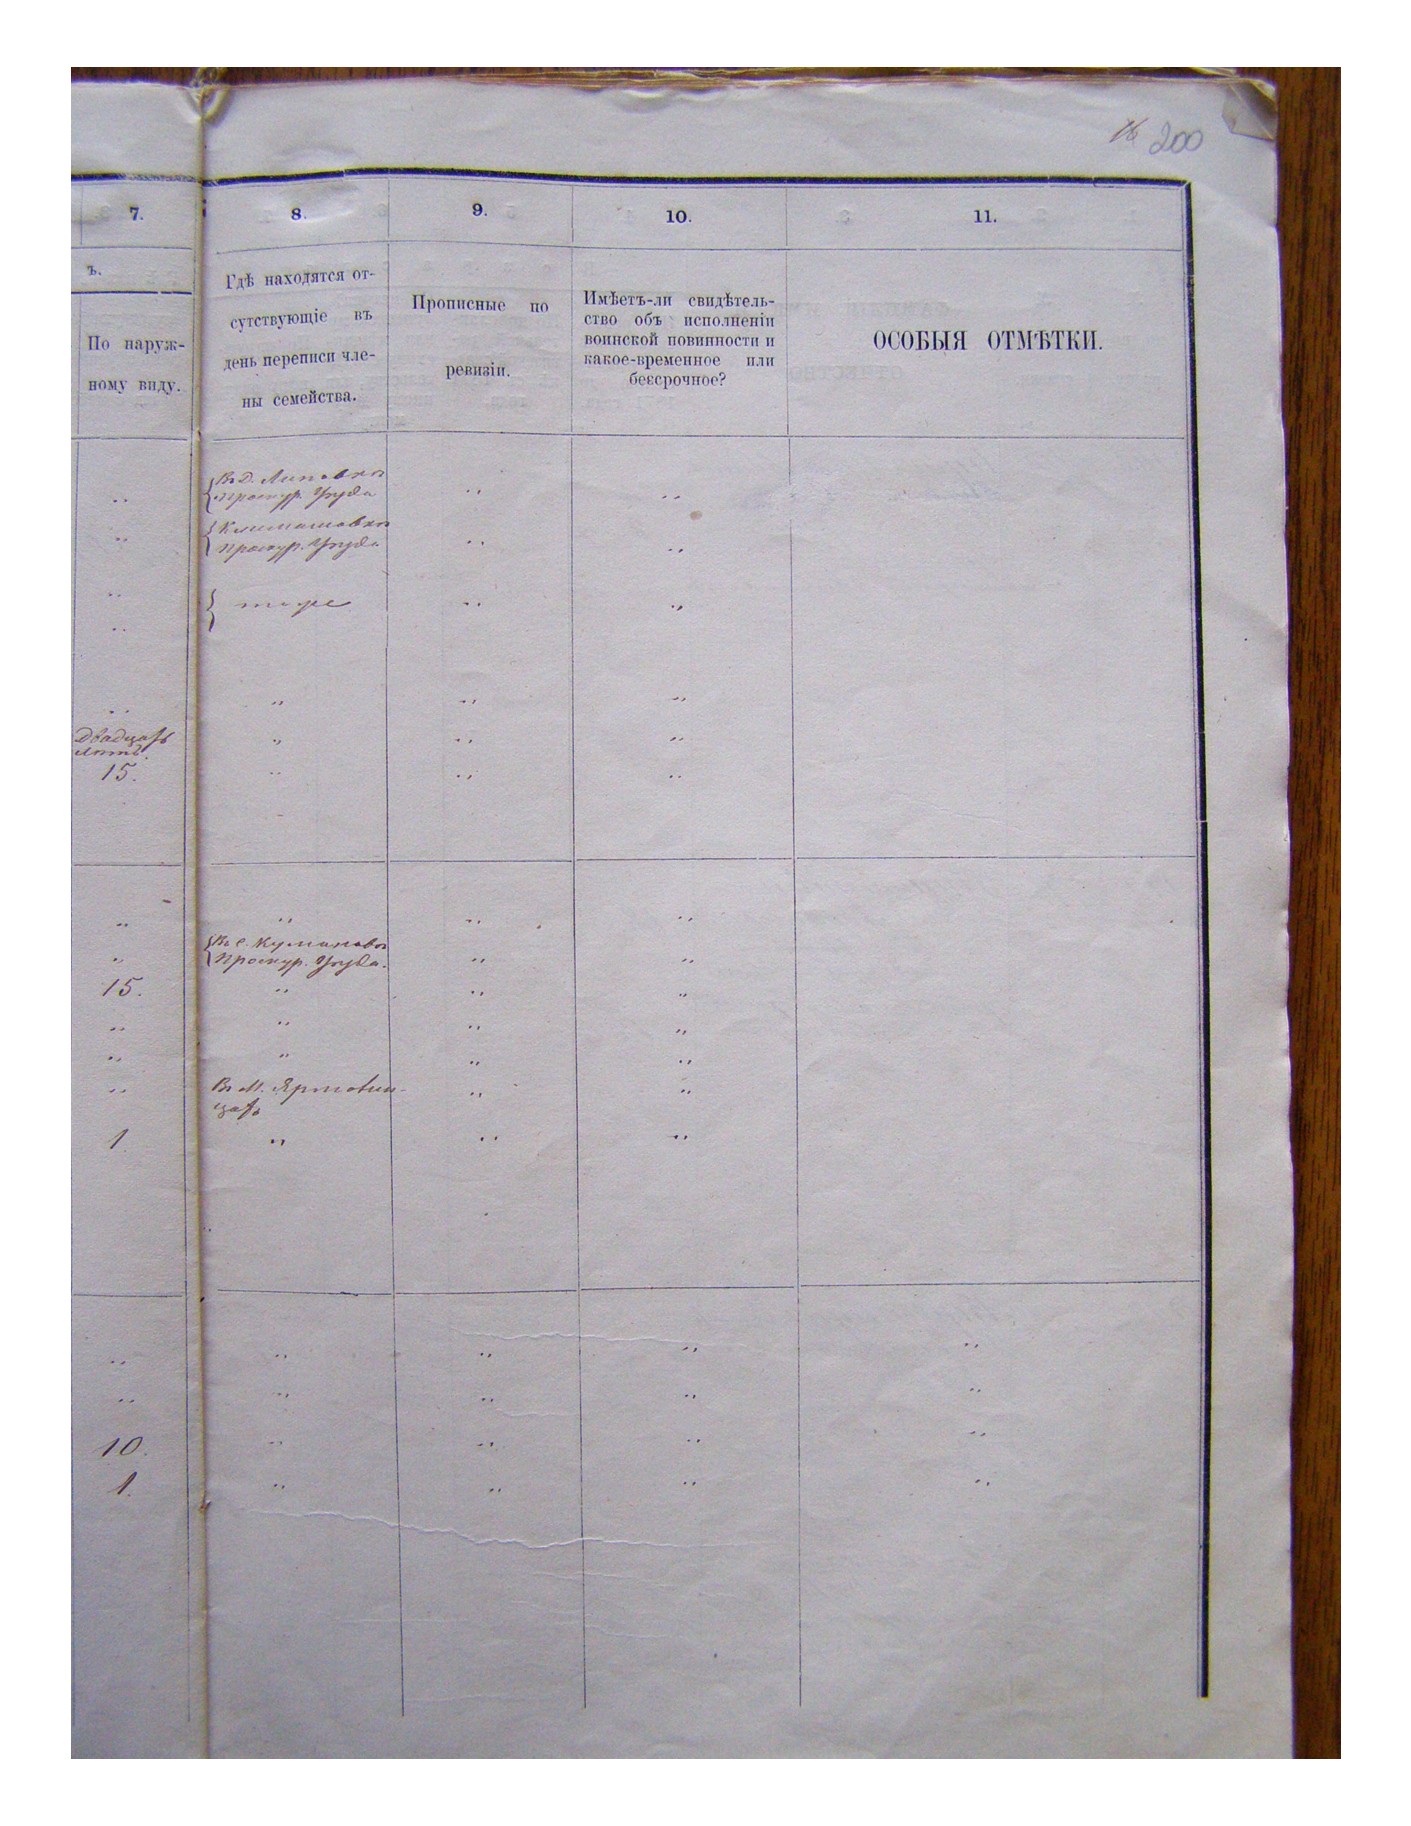 16 200
7. 8. 9. 10. 11.
ъ.
По наруж-
ному виду.
Гдѣ находятся от-
сутствующіе въ
день переписи чле-
ны семейства.
Прописные по
ревизіи.
Имѣетъ-ли свидѣтель-
ство объ исполненіи
воинской повинности и
какое-временное или
безсрочное?
ОСОБЫЯ ОТМѢТКИ.
„ Въ Д. Липовкѣ „ „
Проскур. Уѣзда
„ Климашовкѣ „ „
Проскур. Уѣзда
„ тоже „ „
„
„ „ „ „
Двадцать „ „ „
лѣтъ.
15. „ „ „
„ „ „ „
„ Въ с. Кумановѣ „ „
Проскур. Уѣзда.
15. „ „ „
„ „ „ „
„ „ „ „
„ Въ М. „ „
1. „ „ „
„ „ „ „ „
„ „ „ „ „
10. „ „ „ „
1. „ „ „ „